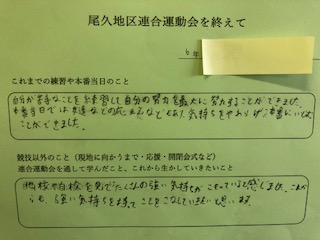 尾久地区連合運動会を終えて
6年
これまでの練習や本番当日のこと
自分が苦手なことを練習して自分の努力を最大に努力することができました。
本番当日では友達などの応えんなどもあり、気持ちをやわらげ本番にいどむ
ことができました。
競技以外のこと(現地に向かうまで・応援・開閉会式など)
連合運動会を通して学んだこと、これから生かしていきたいこと
他校や自校を見てたくさんの強い気持ちがこもっていると感じました。これか
らも、強い気持ちを持ってことをこなしていきたいと思います。